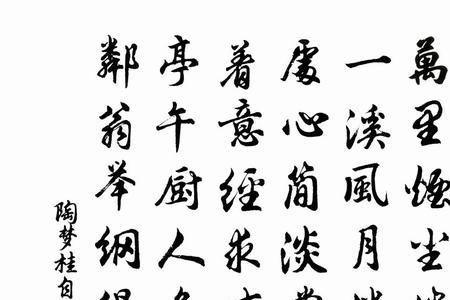 萬里煙尘
一溪風月
處心简淡
着意經求
亭午厨人
鄰翁举網
陶梦桂自